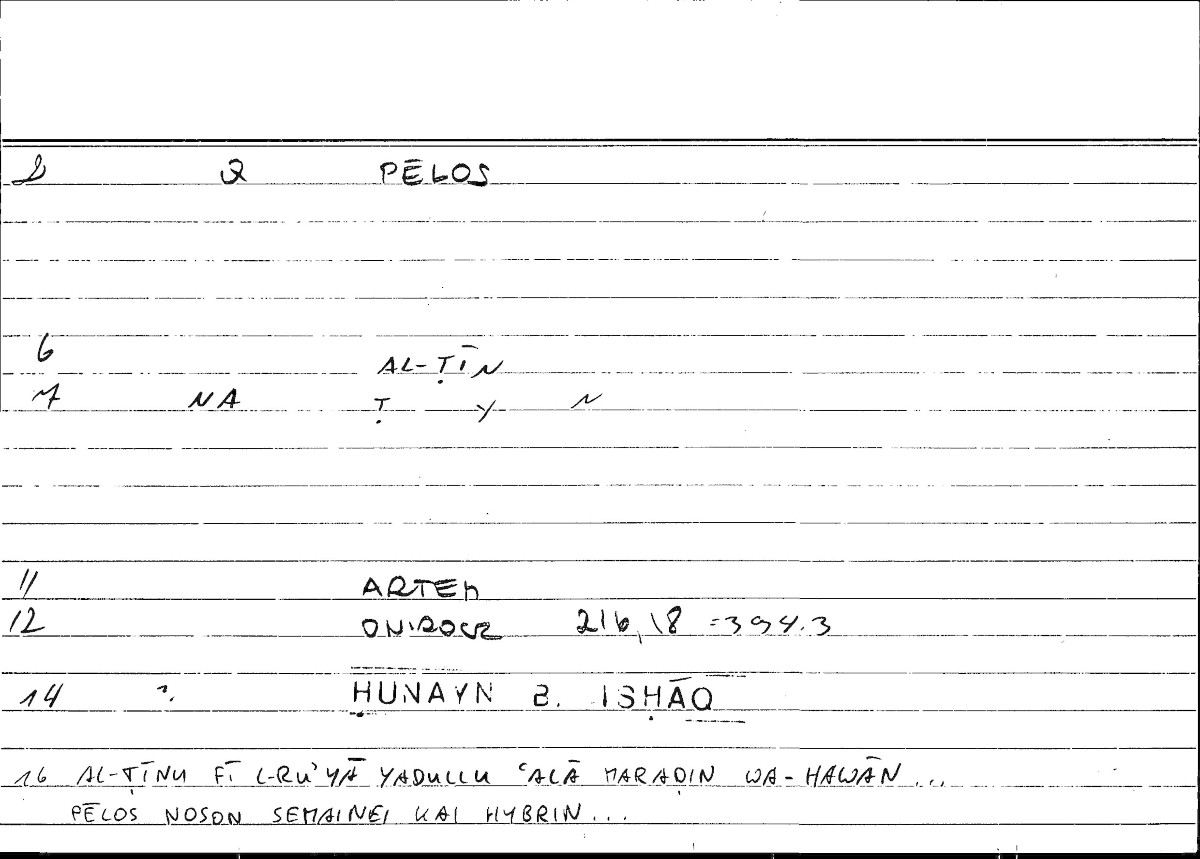 2 PĒLOS
6 AL-ṬĪN
7 NA Ṭ Y N
11 ARTEM
12 ONIROCR 216,18 = 394.3
14 ḤUNAYN B. ISḤĀQ
16 AL-ṬĪNU FĪ L-RU'YĀ YADULLU ʿALĀ MARAḌIN WA-HAWĀN...
PĒLOS NOSON SEMAINEI KAI HYBRIN...